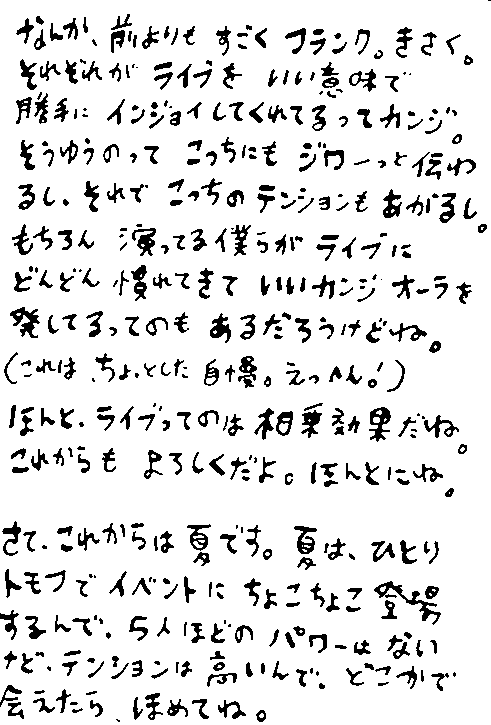 なんか、前よりも すごく フランク。きさく。
それぞれが ライブを いい意味で
勝手に インジョイしてくれてるってカンジ。
そうゆうのって こっちにも ジワーっと伝わ
るし、それで こっちのテンションも あがるし。
もちろん 演ってる僕らが ライブに
どんどん 慣れてきて いいカンジ オーラを
発してるってのも あるだろうけどね。
(これは、ちょっとした 自慢。えっへん!)
ほんと、ライブってのは 相乗効果だね。
これからも よろしくだよ。ほんとにね。
さて、これからは 夏です。夏は、ひとり
トモフで イベントに ちょこちょこ 登場
するんで、5人ほどの パワーは ない
けど、テンションは 高いんで、どこかで
会えたら、ほめてね。